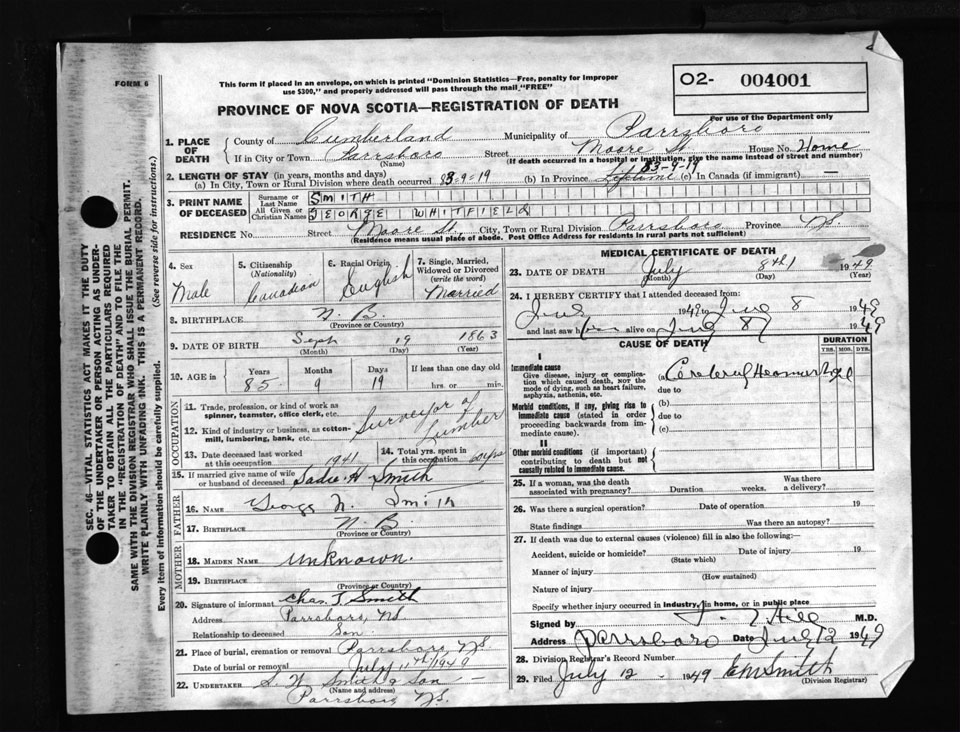 FORM 6
This form if placed in an envelope, on which is printed "Dominion Statistics—Free, penalty for improper
use $300," and properly addressed will pass through the mail "FREE"
O2- 004001
For use of the Department only
PROVINCE OF NOVA SCOTIA—REGISTRATION OF DEATH
1. PLACE OF DEATH
County of Cumberland Municipality of Parrsboro
If in City or Town Parrsboro Street Moore St. House No. Home
(Name) (If death occurred in a hospital or institution, give the name instead of street and number)
2. LENGTH OF STAY (in years, months and days)
(a) In City, Town or Rural Division where death occurred 83-9-19 (b) In Province Lifetime 83-9-19 (c) In Canada (if immigrant) —
3. PRINT NAME OF DECEASED
Surname or Last Name SMITH
All Given or Christian Names GEORGE WHITFIELD
RESIDENCE No. Street Moore St., City, Town or Rural Division Parrsboro Province N.S.
(Residence means usual place of abode. Post Office Address for residents in rural parts not sufficient)
4. Sex
Male
5. Citizenship
(Nationality)
Canadian
6. Racial Origin
English
7. Single, Married,
Widowed or Divorced
(write the word)
Married
8. BIRTHPLACE N. B.
(Province or Country)
9. DATE OF BIRTH Sept 19 1863
(Month) (Day) (Year)
10. AGE in Years Months Days If less than one day old
85 9 19 hrs. or min.
OCCUPATION
11. Trade, profession, or kind of work as
spinner, teamster, office clerk, etc.
12. Kind of industry or business, as cotton-
mill, lumbering, bank, etc.
Surveyor of
Lumber
13. Date deceased last worked
at this occupation 1941
14. Total yrs. spent in
this occupation 60 yrs
15. If married give name of wife
or husband of deceased Sadie H Smith
FATHER
16. NAME George N. Smith
17. BIRTHPLACE N. B.
(Province or Country)
MOTHER
18. MAIDEN NAME Unknown.
19. BIRTHPLACE
(Province or Country)
20. Signature of informant Chas. T Smith
Address Parrsboro, NS
Relationship to deceased Son
21. Place of burial, cremation or removal Parrsboro, N.S.
Date of burial or removal July 11th 1949
22. UNDERTAKER S. W. Smith & Son —
(Name and address)
Parrsboro N.S.
MEDICAL CERTIFICATE OF DEATH
23. DATE OF DEATH July 8th 1949
(Month) (Day) (Year)
24. I HEREBY CERTIFY that I attended deceased from:
June 1949 to June 8 1949
and last saw him alive on July 8 1949
CAUSE OF DEATH
DURATION
YRS. MOS. DYS.
I
Immediate cause
Give disease, injury or complica-
tion which caused death, not the
mode of dying, such as heart failure,
asphyxia, asthenia, etc.
(a) Cerebral
due to
Morbid conditions, if any, giving rise to
immediate cause (stated in order
proceeding backwards from im-
mediate cause).
(b)
due to
(c)
II
Other morbid conditions (if important)
contributing to death but not
causally related to immediate cause.
25. If a woman, was the death
associated with pregnancy? Duration weeks. Was there
a delivery?
26. Was there a surgical operation? Date of operation 19
State findings Was there an autopsy?
27. If death was due to external causes (violence) fill in also the following:—
Accident, suicide or homicide? Date of injury 19
(State which)
Manner of injury
(How sustained)
Nature of injury
Specify whether injury occurred in industry, in home, or in public place
Signed by Hill M.D.
Address Parrsboro Date July 12 1949
28. Division Registrar's Record Number
29. Filed July 12 - 1949 EM Smith
(Division Registrar)
SEC. 46—VITAL STATISTICS ACT MAKES IT THE DUTY
OF THE UNDERTAKER OR PERSON ACTING AS UNDER-
TAKER TO OBTAIN ALL THE PARTICULARS REQUIRED
IN THE "REGISTRATION OF DEATH" AND TO FILE THE
SAME WITH THE DIVISION REGISTRAR WHO SHALL ISSUE THE BURIAL PERMIT.
WRITE PLAINLY WITH UNFADING INK. THIS IS A PERMANENT RECORD.
Every item of information should be carefully supplied. (See reverse side for instructions.)